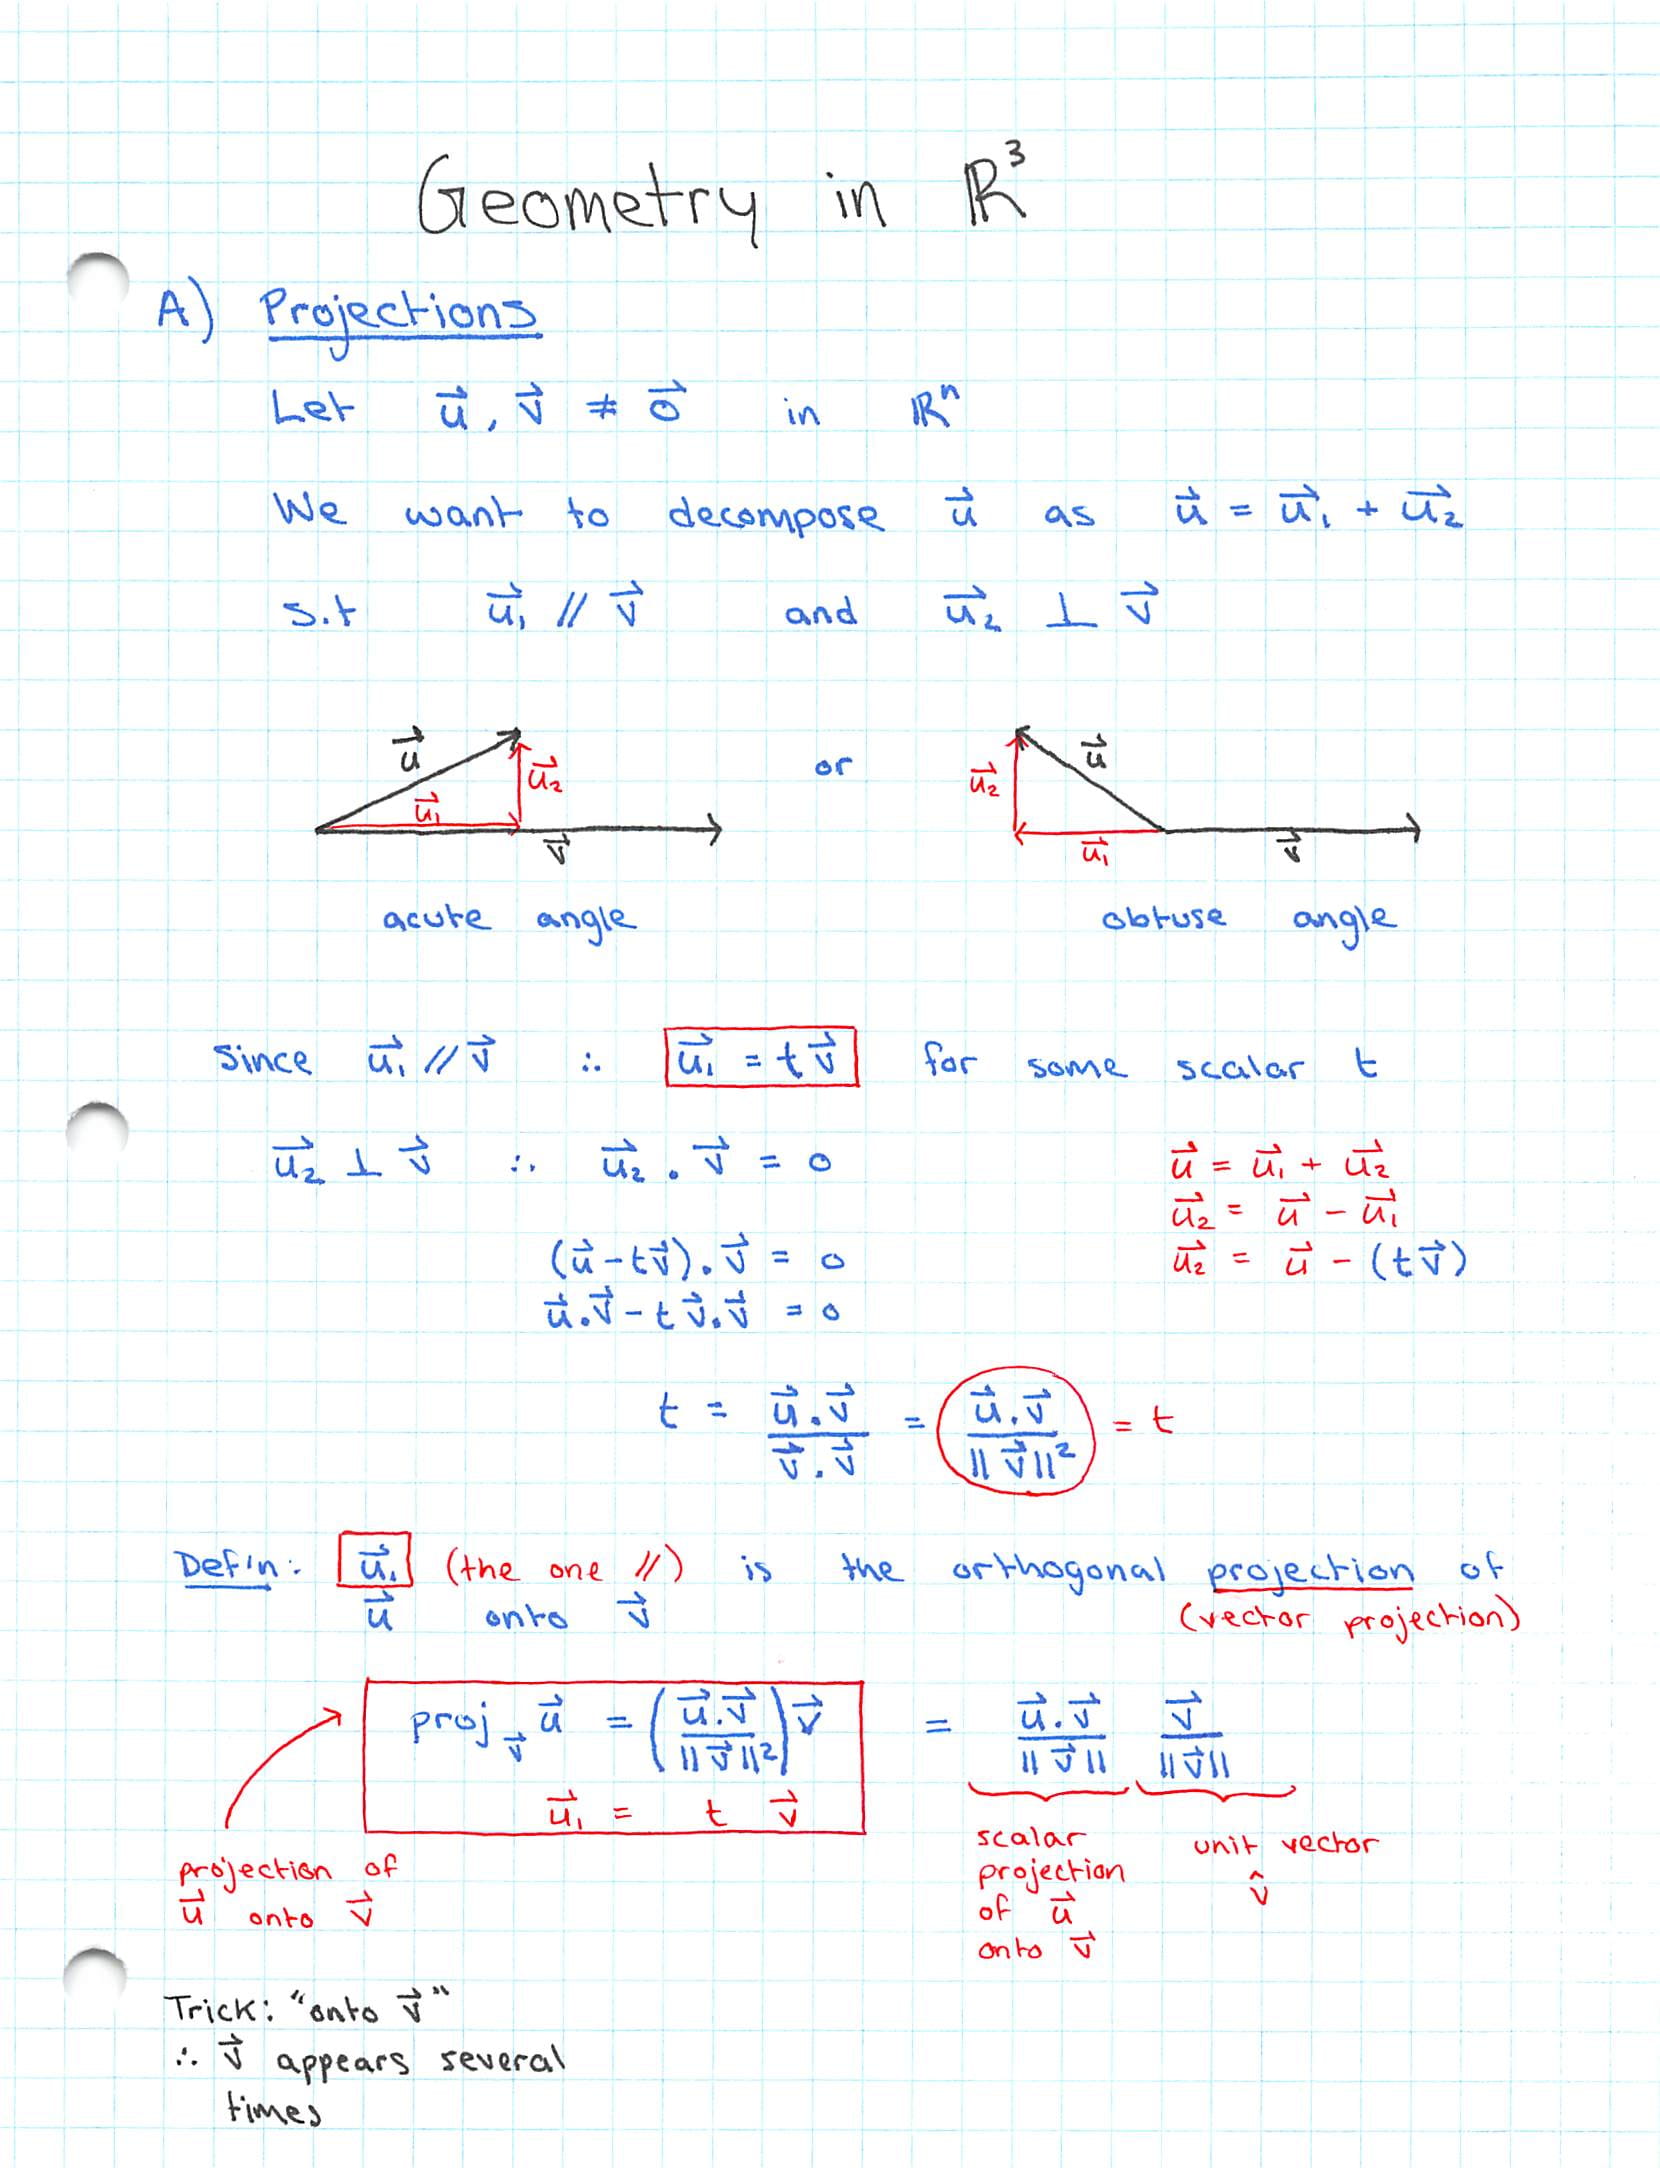 Geometry in ℝ³
A) Projections
Let u⃗, v⃗ ≠ 0⃗ in ℝⁿ
We want to decompose u⃗ as u⃗ = u⃗₁ + u⃗₂
s.t u⃗₁ // v⃗ and u⃗₂ ⊥ v⃗
u⃗ u⃗₁ u⃗₂ v⃗ or u⃗₂ u⃗ u⃗₁ v⃗
acute angle obtuse angle
Since u⃗₁ // v⃗ ∴ u⃗₁ = t v⃗ for some scalar t
u⃗₂ ⊥ v⃗ ∴ u⃗₂ . v⃗ = 0
u⃗ = u⃗₁ + u⃗₂
u⃗₂ = u⃗ - u⃗₁
u⃗₂ = u⃗ - (t v⃗)
(u⃗ - t v⃗) . v⃗ = 0
u⃗ . v⃗ - t v⃗ . v⃗ = 0
t = (u⃗ . v⃗)/(v⃗ . v⃗) = (u⃗ . v⃗)/(||v⃗||²) = t
Def'n: u⃗₁ (the one //) is the orthogonal projection of
u⃗ onto v⃗ (vector projection)
proj_v⃗ u⃗ = ((u⃗ . v⃗)/(||v⃗||²)) v⃗ = (u⃗ . v⃗)/(||v⃗||) v⃗/(||v⃗||)
u⃗₁ = t v⃗
projection of
u⃗ onto v⃗
scalar
projection
of u⃗
onto v⃗
unit vector
v̂
Trick: "onto v⃗"
∴ v⃗ appears several
times